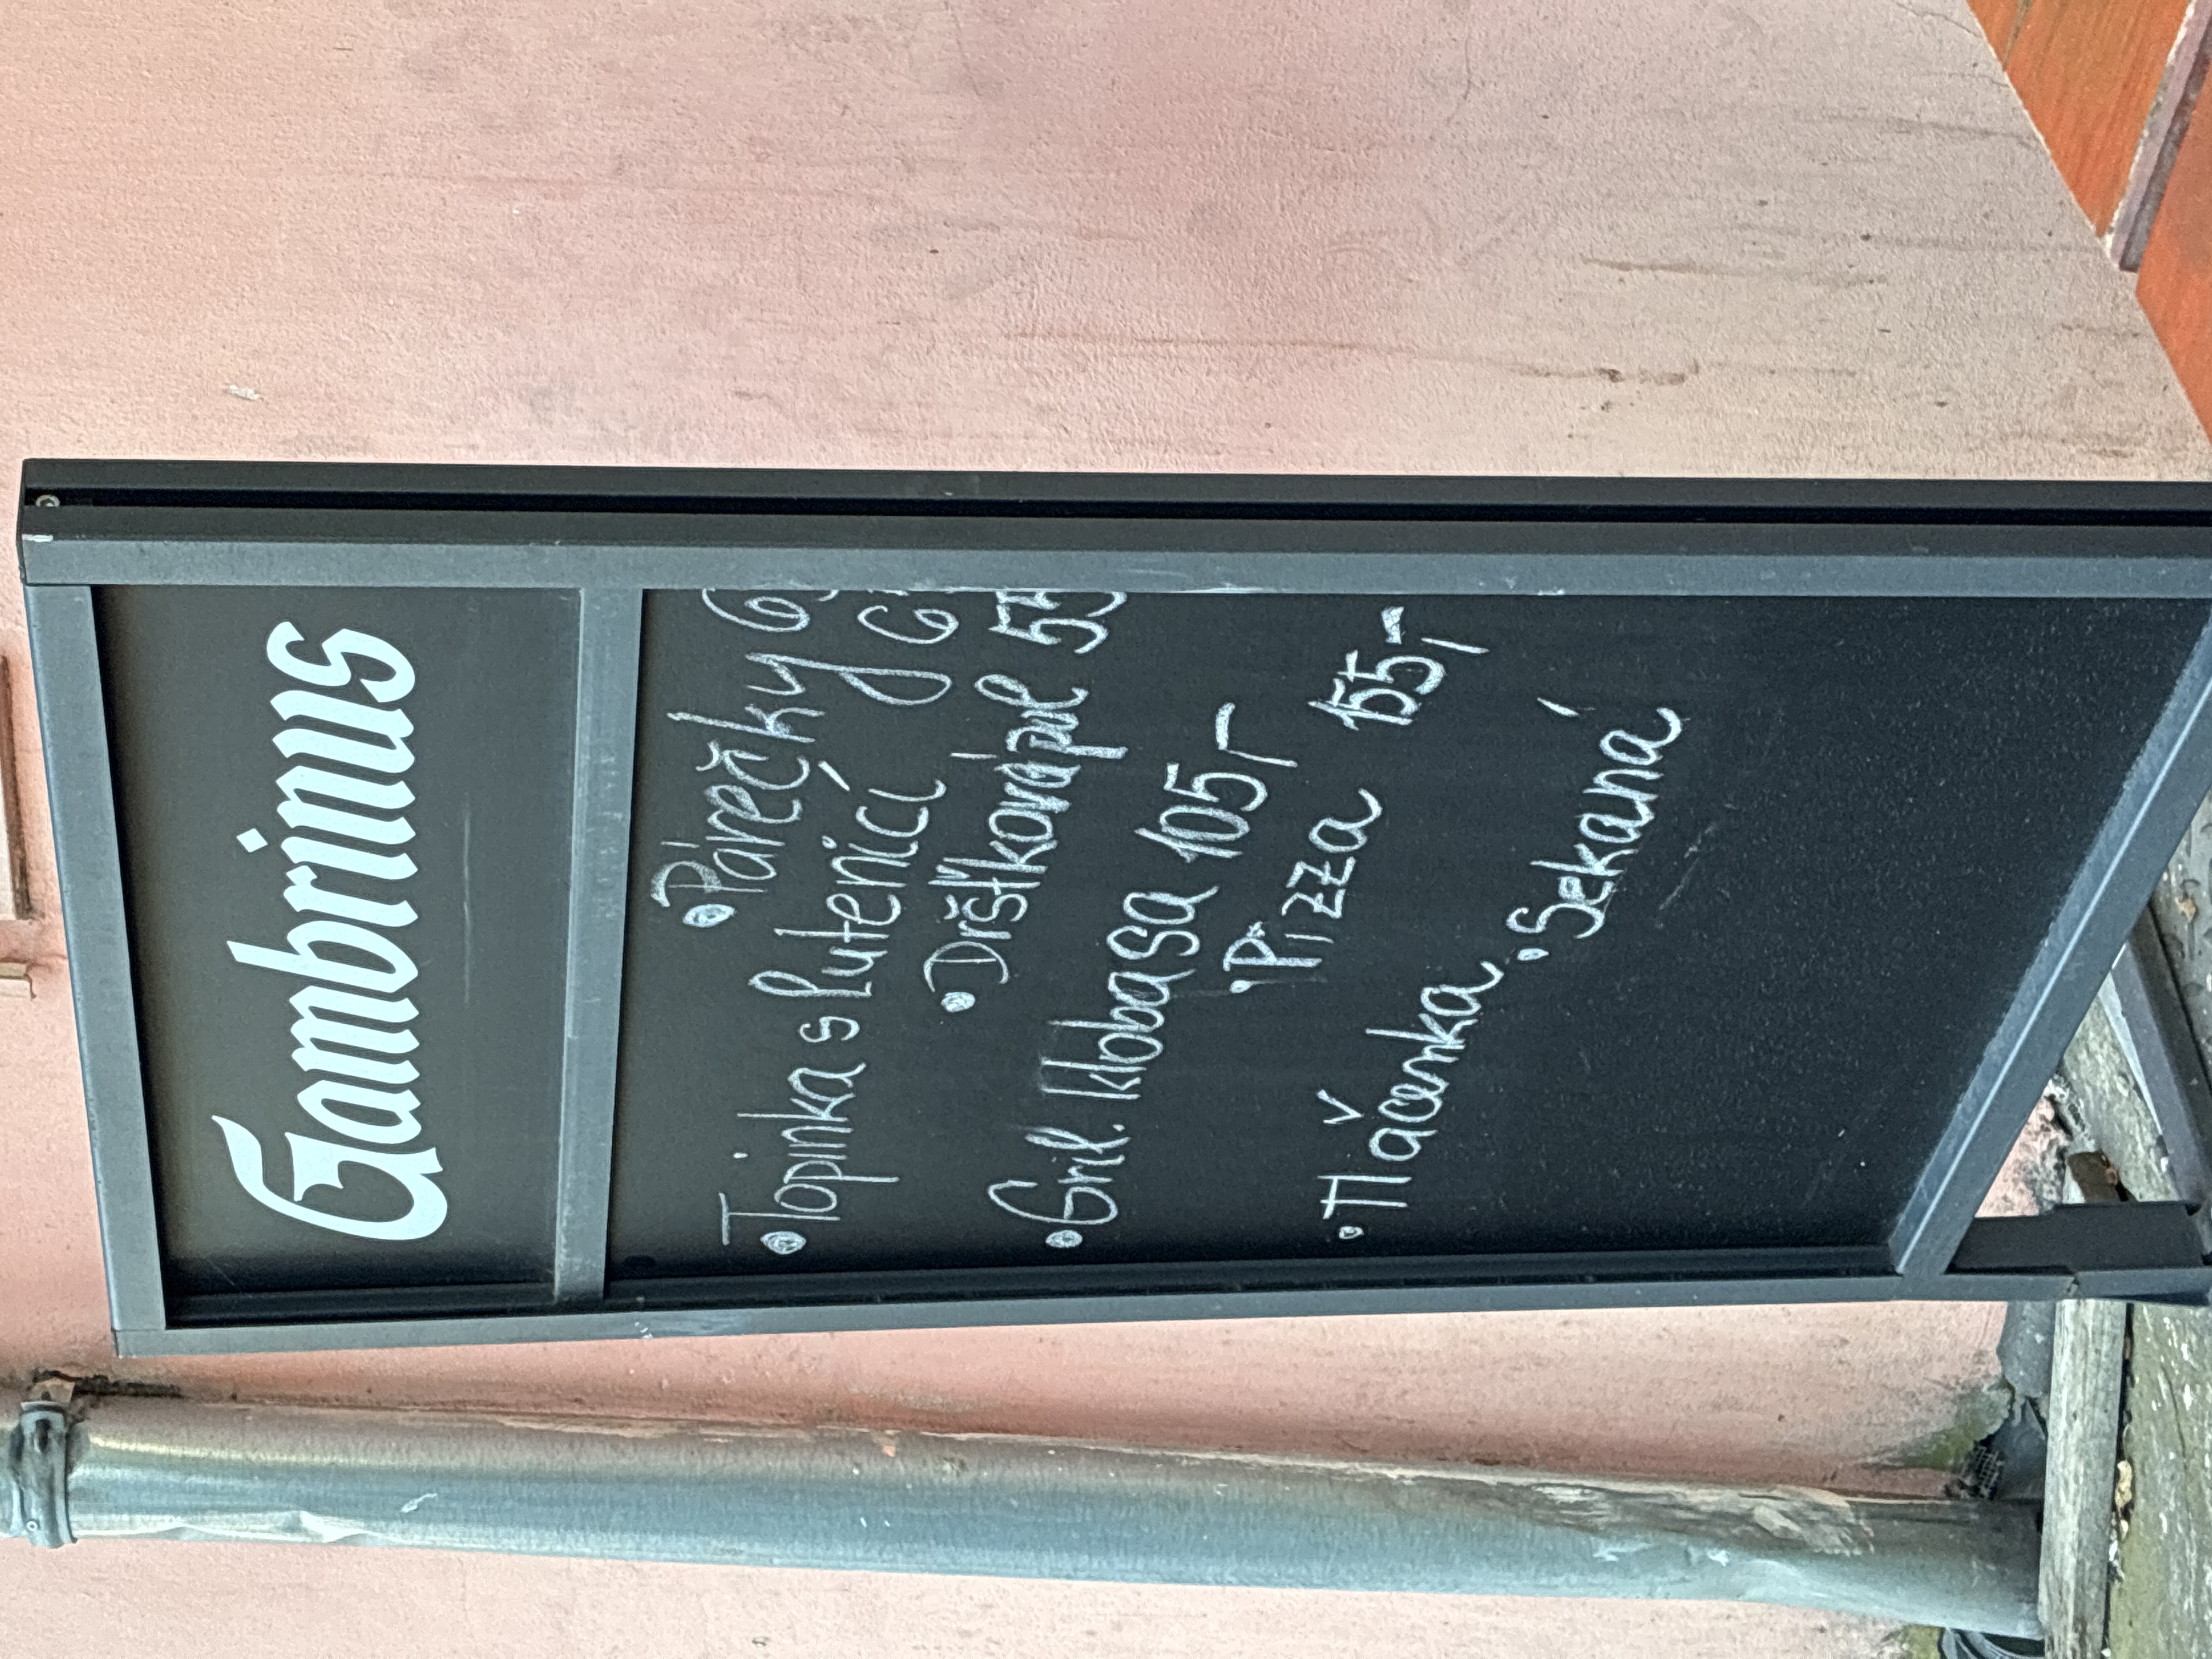 Gambrinus
• Párečky
• Topinka s lutenicí
• Dršťková pol 55
• Gril. klobasa 105,-
• Pizza 155,-
• Tlačenka
• Sekaná